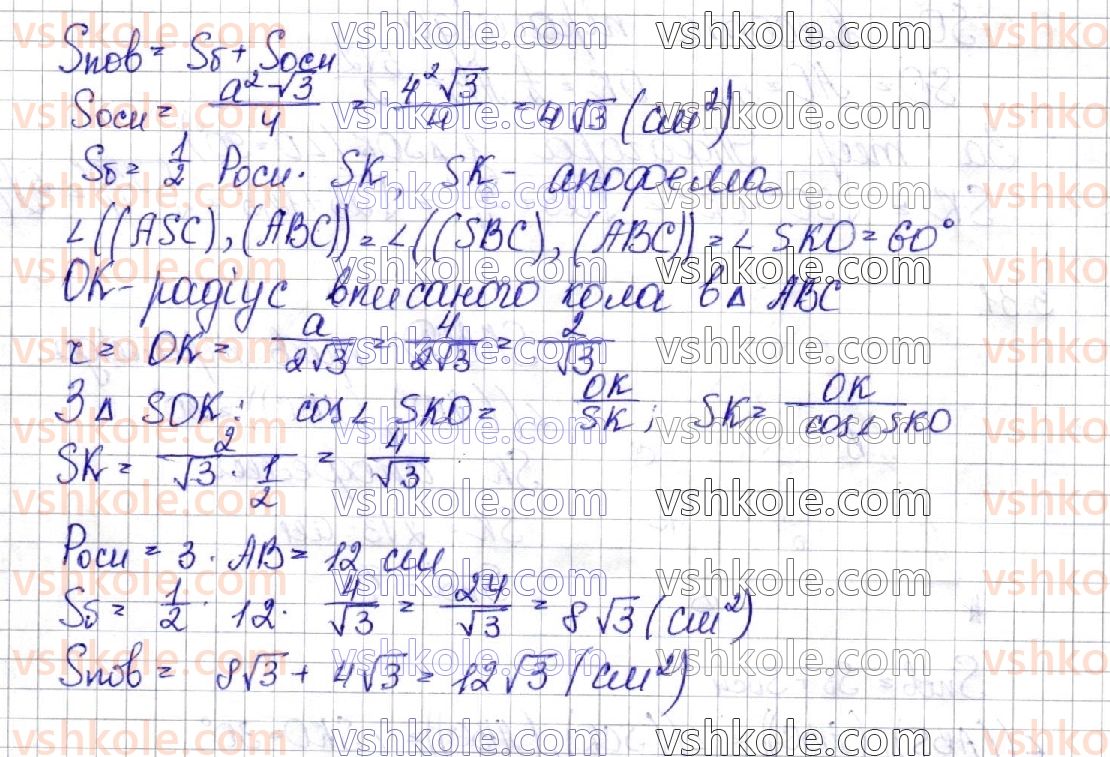 Sпов = Sб + Sосн
Sосн = a²√3/4 = 4²√3/4 = 4√3 (см²)
Sб = 1/2 Pосн · SK, SK - апофема
∠((ASC), (ABC)) = ∠((SBC), (ABC)) = ∠ SKO = 60°
OK - радіус вписаного кола в △ ABC
r = OK = a/2√3 = 4/2√3 = 2/√3
З △ SOK: cos∠ SKO = OK/SK; SK = OK/cos∠SKO
SK = 2/(√3 · 1/2) = 4/√3
Pосн = 3 · AB = 12 см
Sб = 1/2 · 12 · 4/√3 = 24/√3 = 8√3 (см²)
Sпов = 8√3 + 4√3 = 12√3 (см²)
vshkole.com